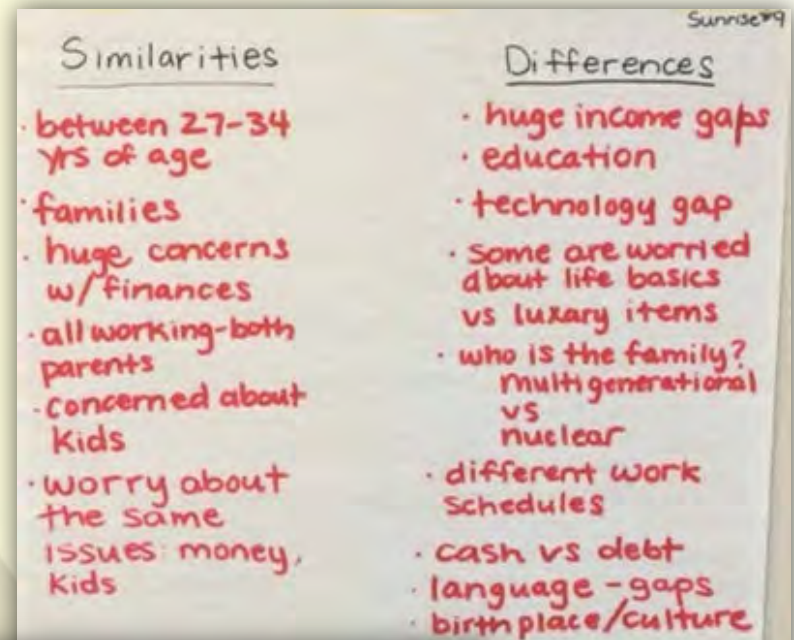 Sunrise #9
Similarities
· between 27-34
yrs of age
· families
· huge concerns
w/ finances
· all working-both
parents
· concerned about
kids
· worry about
the same
issues: money,
kids
Differences
· huge income gaps
· education
· technology gap
· some are worried
about life basics
vs luxary items
· who is the family?
multigenerational
vs
nuclear
· different work
schedules
· cash vs debt
· language - gaps
· birthplace/culture